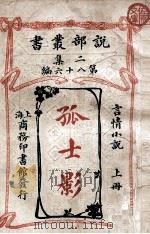 說部叢書
二集
第八十六編
言情小說 上冊
孤士影
上海商務印書館發行